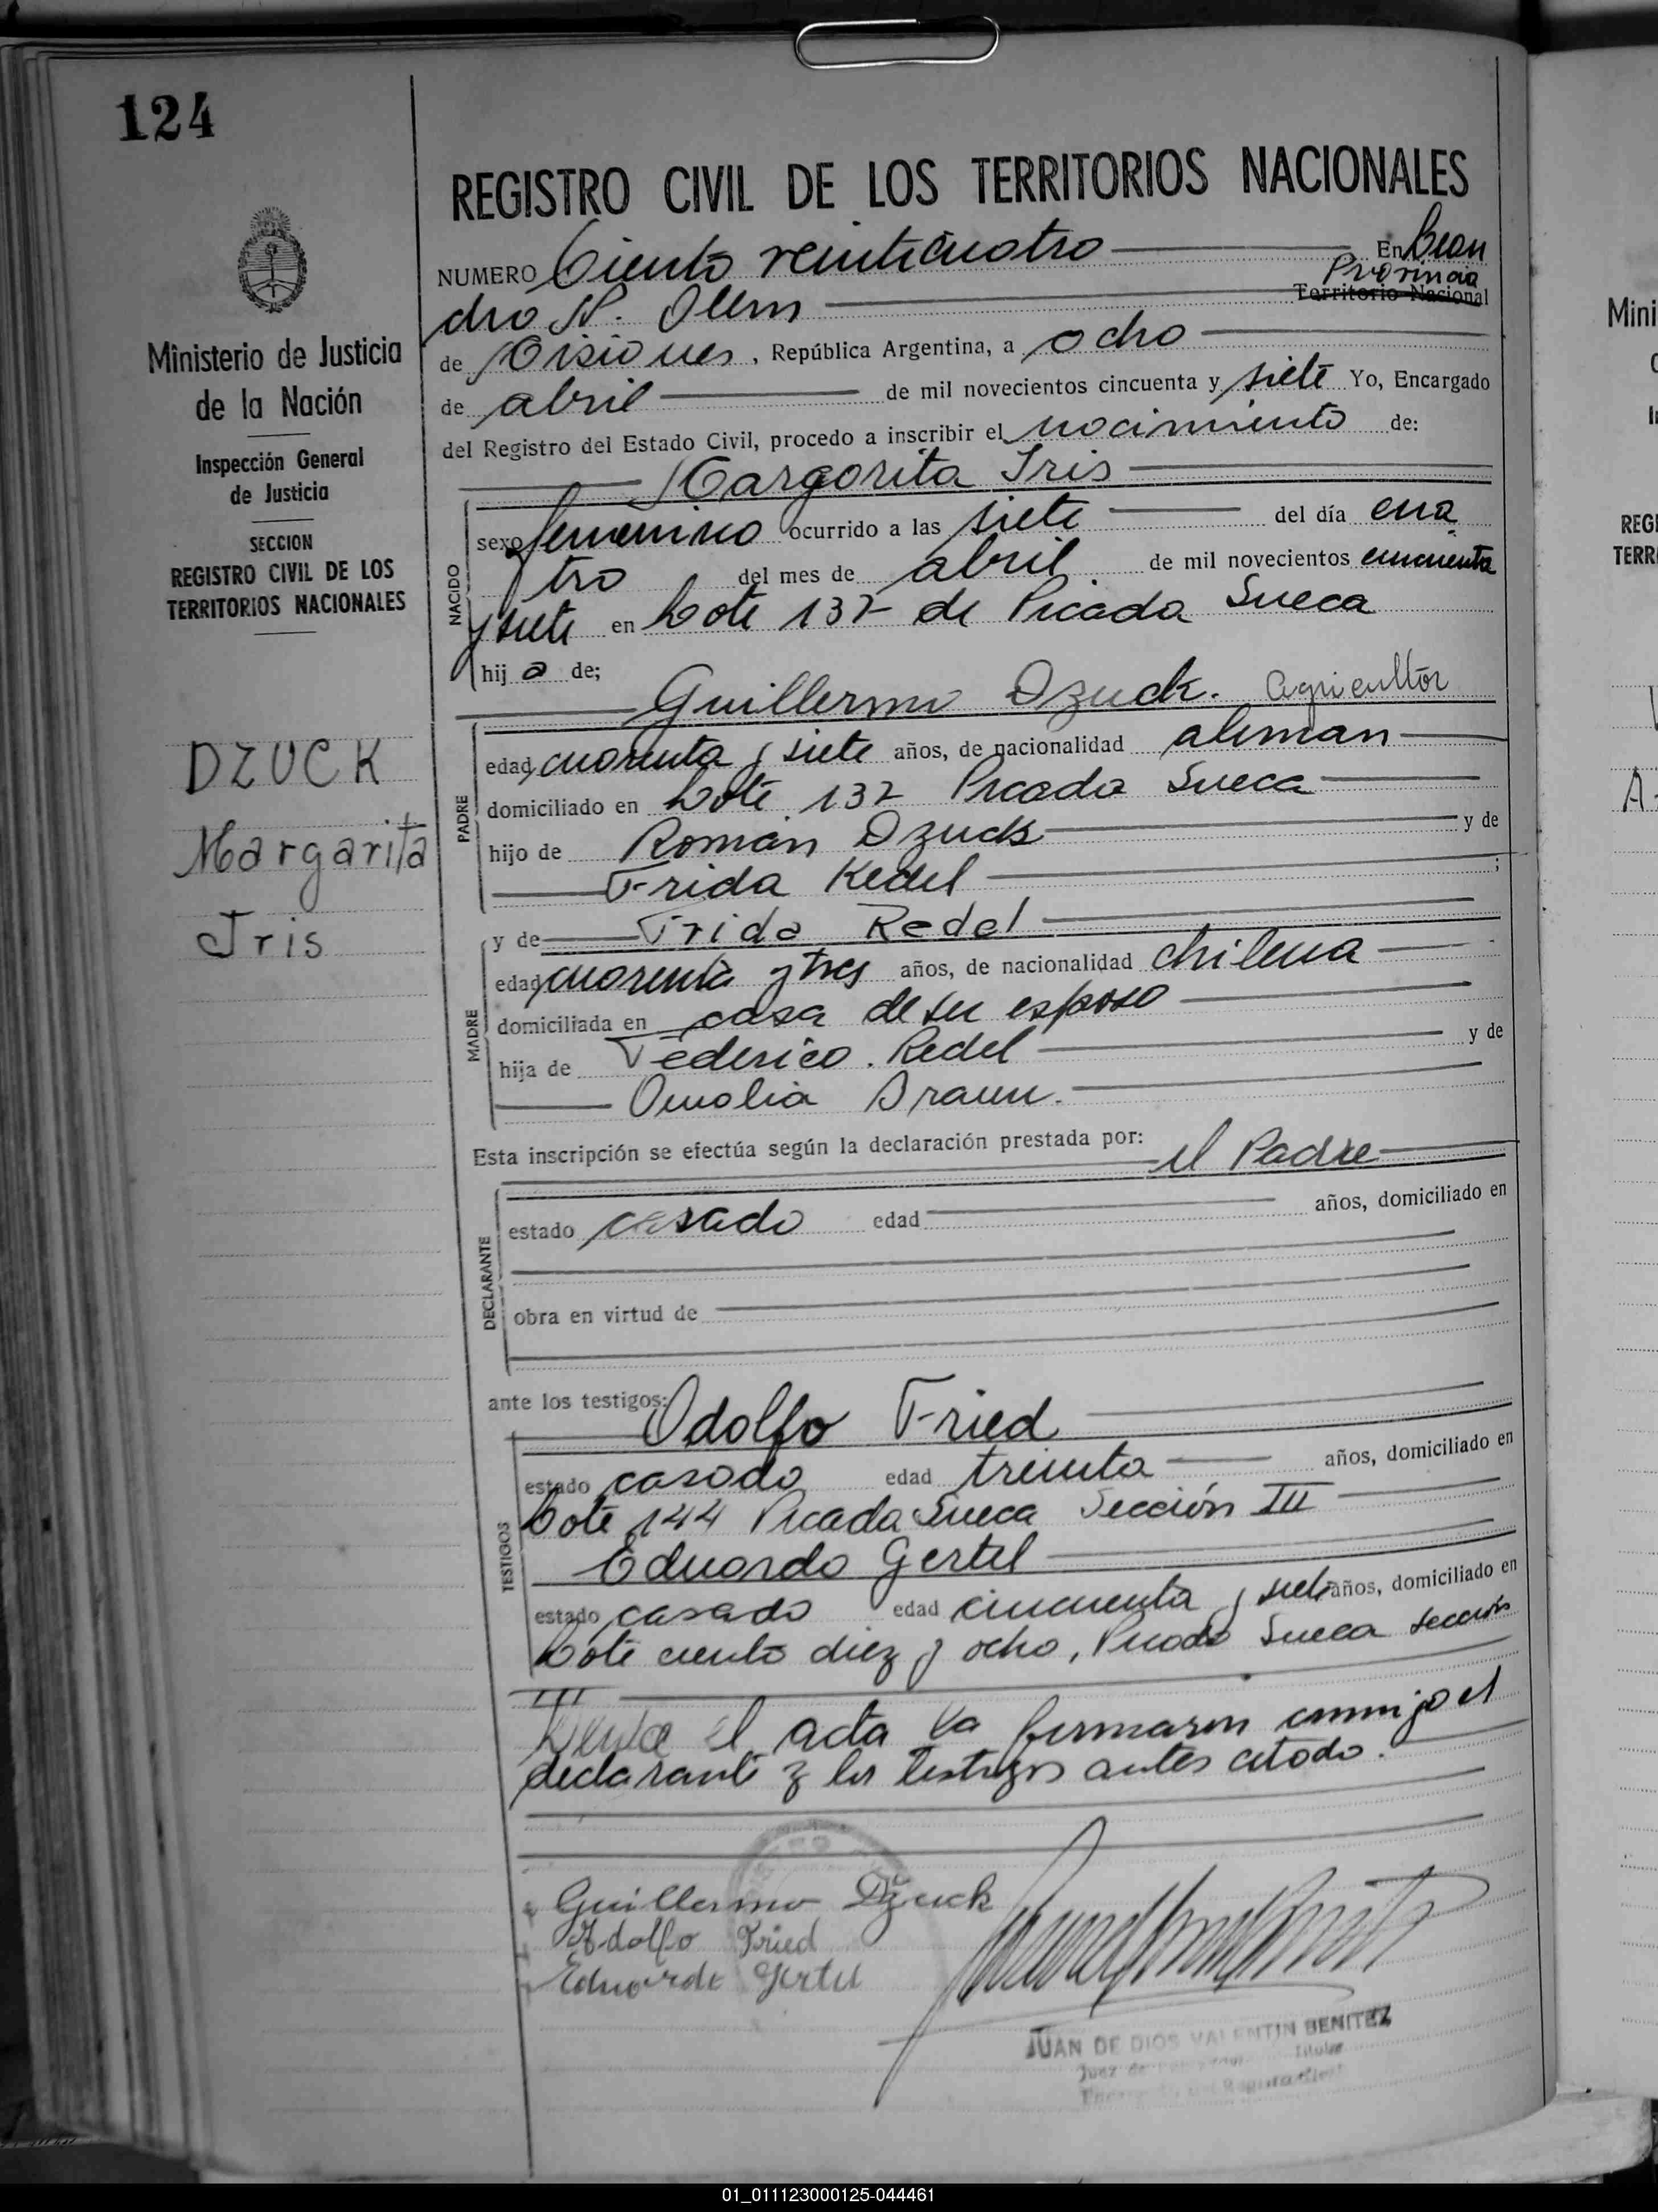 124
REGISTRO CIVIL DE LOS TERRITORIOS NACIONALES
NUMERO Ciento veinticuatro En Lean
Provincia
Territorio Nacional
dro N. Alem
de Misiones, República Argentina, a ocho
de abril de mil novecientos cincuenta y siete Yo, Encargado
del Registro del Estado Civil, procedo a inscribir el nacimiento de:
Margarita Iris
NACIDO
sexo femenino ocurrido a las siete del día cua
tro del mes de abril de mil novecientos cincuenta
y siete en Lote 137 de Picada Sueca
hij a de;
Guillermo Dzuck. agricultor
PADRE
edad cuarenta y siete años, de nacionalidad aleman
domiciliado en Lote 137 Picada Sueca
hijo de Román Dzuck y de
Frida Redel ;
y de Frida Redel
MADRE
edad cuarenta y tres años, de nacionalidad chilena
domiciliada en casa de su esposo
hija de Federico Redel y de
Amalia Braun.
Esta inscripción se efectúa según la declaración prestada por: el Padre
DECLARANTE
estado casado edad años, domiciliado en
obra en virtud de
ante los testigos: Adolfo Fried
TESTIGOS
estado casado edad treinta años, domiciliado en
Lote 144 Picada Sueca Sección III
Eduardo Gertel
estado casado edad cincuenta y siete años, domiciliado en
Lote ciento diez y ocho, Picada Sueca sección
III
el acta la firmaron conmigo el
declarante y los testigos antes citado.
Guillermo Dzuck
Adolfo Fried
Eduardo Gertel
JUAN DE DIOS VALENTIN BENITEZ
Juez de Titular
Ministerio de Justicia
de la Nación
Inspección General
de Justicia
SECCION
REGISTRO CIVIL DE LOS
TERRITORIOS NACIONALES
DZUCK
Margarita
Iris
Mini
REGI
TERR
01_011123000125-044461